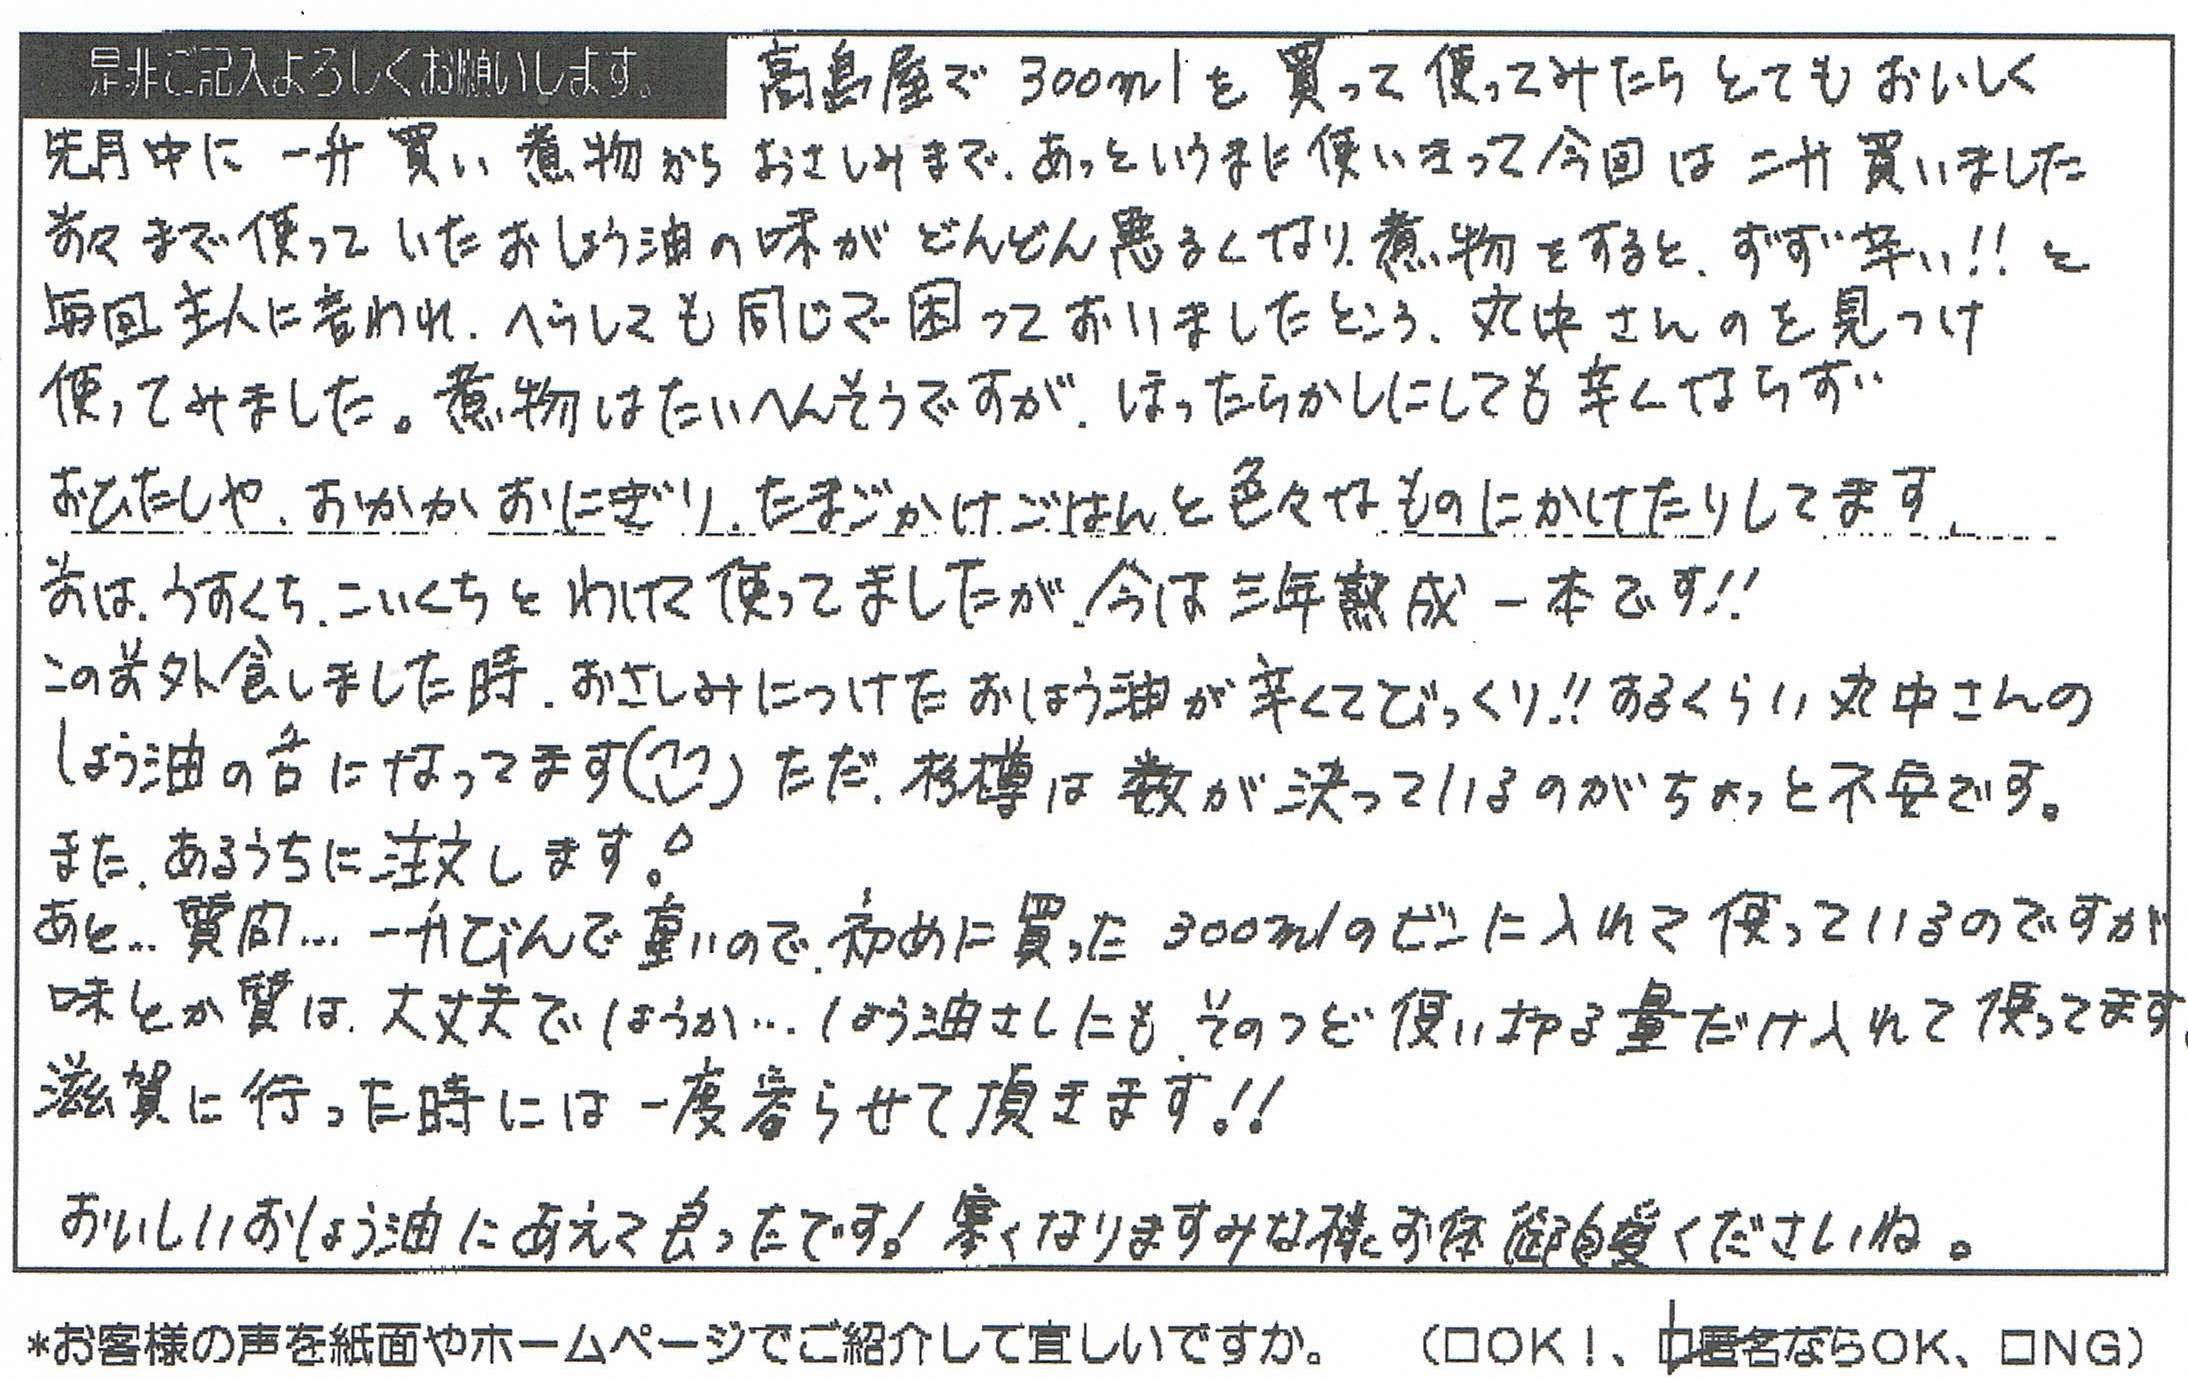 是非ご記入よろしくお願いします。
高島屋で 300mlを 買って 使ってみたら とても おいしく
先月中に 一升 買い 煮物から おさしみまで、あっというまに 使いきって 今回は 二升 買いました
前々まで使って いたおしょう油の味が どんどん悪るくなり、煮物をすると、ずず辛い!! と
毎回 主人に言われ、へらしても同じで困って おりましたところ、丸中さんのを見つけ
使ってみました。煮物はたいへんそうですが、ほったらかしにしても 辛くならず
おひたしや、おかかおにぎり、たまごかけごはんと色々なものにかけたりしてます、
前は、うすくち、こいくちと わけて使ってましたが、今は三年熟成 一本です!!
この前外食しました時、おさしみにつけたおしょう油が辛くてびっくり!! するくらい 丸中さんの
しょう油の舌になってます ただ、杉樽は数が決っているのがちょっと不安です。
また、あるうちに注文します。
あと… 質問… 一升びんで重いので、初めに買った 300mlのビンに入れて使っているのですが
味とか質は、大丈夫でしょうか… しょう油さしにも、そのつど使い切る量だけ入れて使ってます。
滋賀に行った時には一度寄らせて頂きます!!
おいしいおしょう油にあえて良ったです! 寒くなりますみな様お体御自愛くださいね。
*お客様の声を紙面やホームページでご紹介して宜しいですか。 (□OK!、□匿名ならOK、□NG)